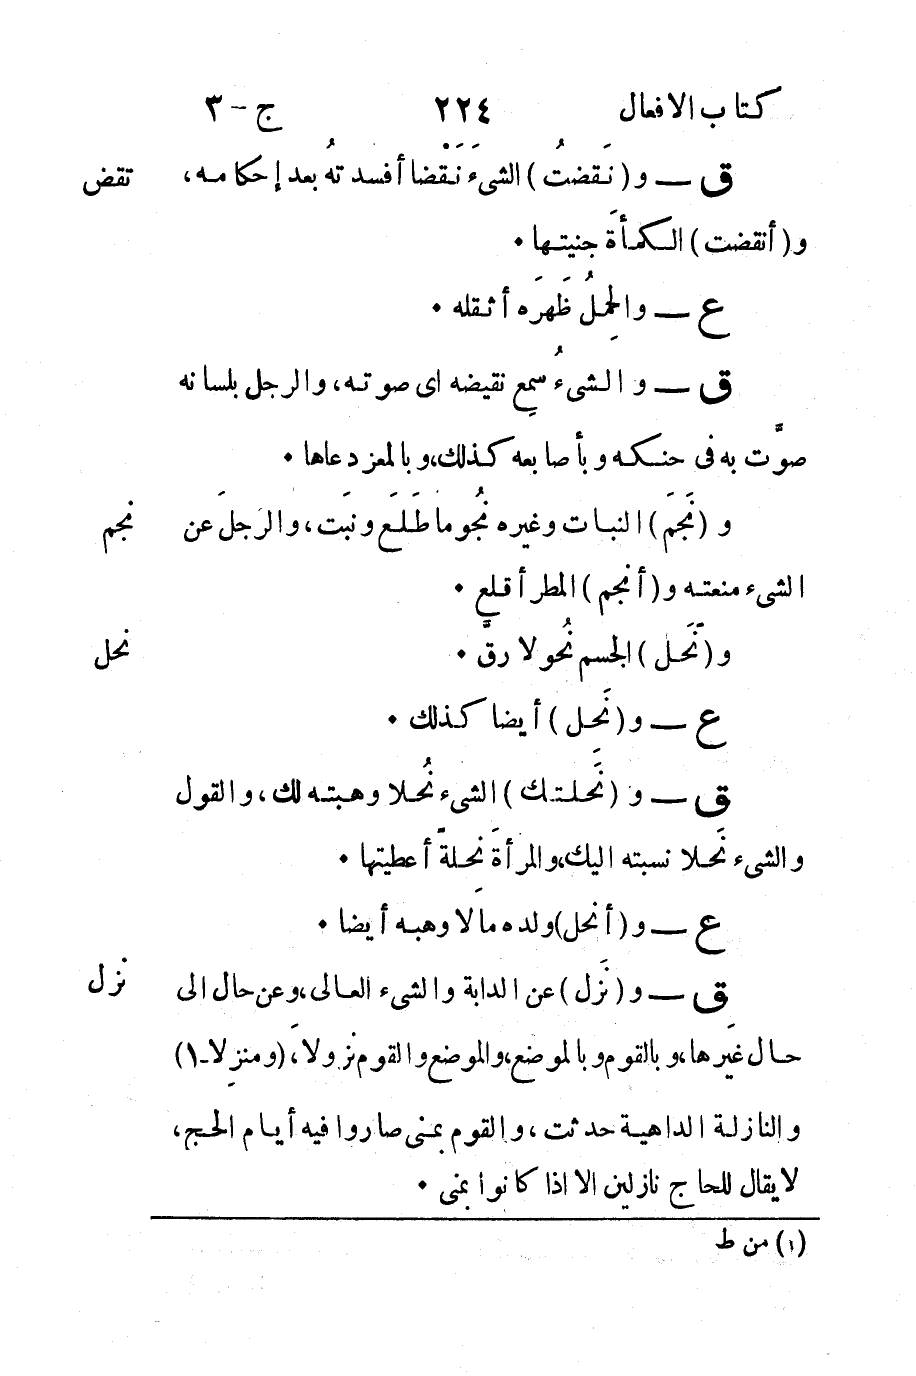 كتاب الافعال ٢٢٤ ج - ٣
ق — و (نَقضتُ) الشيءَ نَقْضا أفسدتهُ بعد إحكامه، نقض
و (أنقضت) الكمأةَ جنيتها •
ع — والحِملُ ظَهرَه أثقله •
ق — والشيءُ سُمِع نقيضه اى صوته، والرجل بلسانه
صوَّت به فى حنكه و بأصابعه كذلك، و بالمعز دعاها •
و (نَجَمَ) النبات وغيره نُجوما طَلَع ونبَت، والرجلَ عن نجم
الشىء منعته و (أنجم) المطر أقلع •
و (نَحَل) الجسم نُحولا رقَّ • نحل
ع — و (نَحِل) أيضا كذلك •
ق — و (نَحَلتك) الشىء نُحلا وهبته لك، والقول
والشىء نَحلا نسبته اليك، والمرأةَ نِحلةً أعطيتها •
ع — و (أنحل) ولده مَالا وهبه أيضا •
ق — و (نَزل) عن الدابة والشىء العالى، وعن حال الى نزل
حال غيرِها، و بالقوم و بالموضع، والموضع والقوم نزولا، (ومنزَلا - ١)
والنازلة الداهية حدثت، والقوم بمِنى صاروا فيه أيام الحج،
لا يقال للحاج نازلين الا اذا كانوا بمنى •
(١) من ط